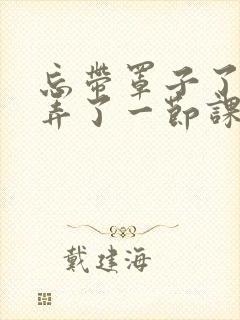 忘带罩子了
弄了一节課
戴建海